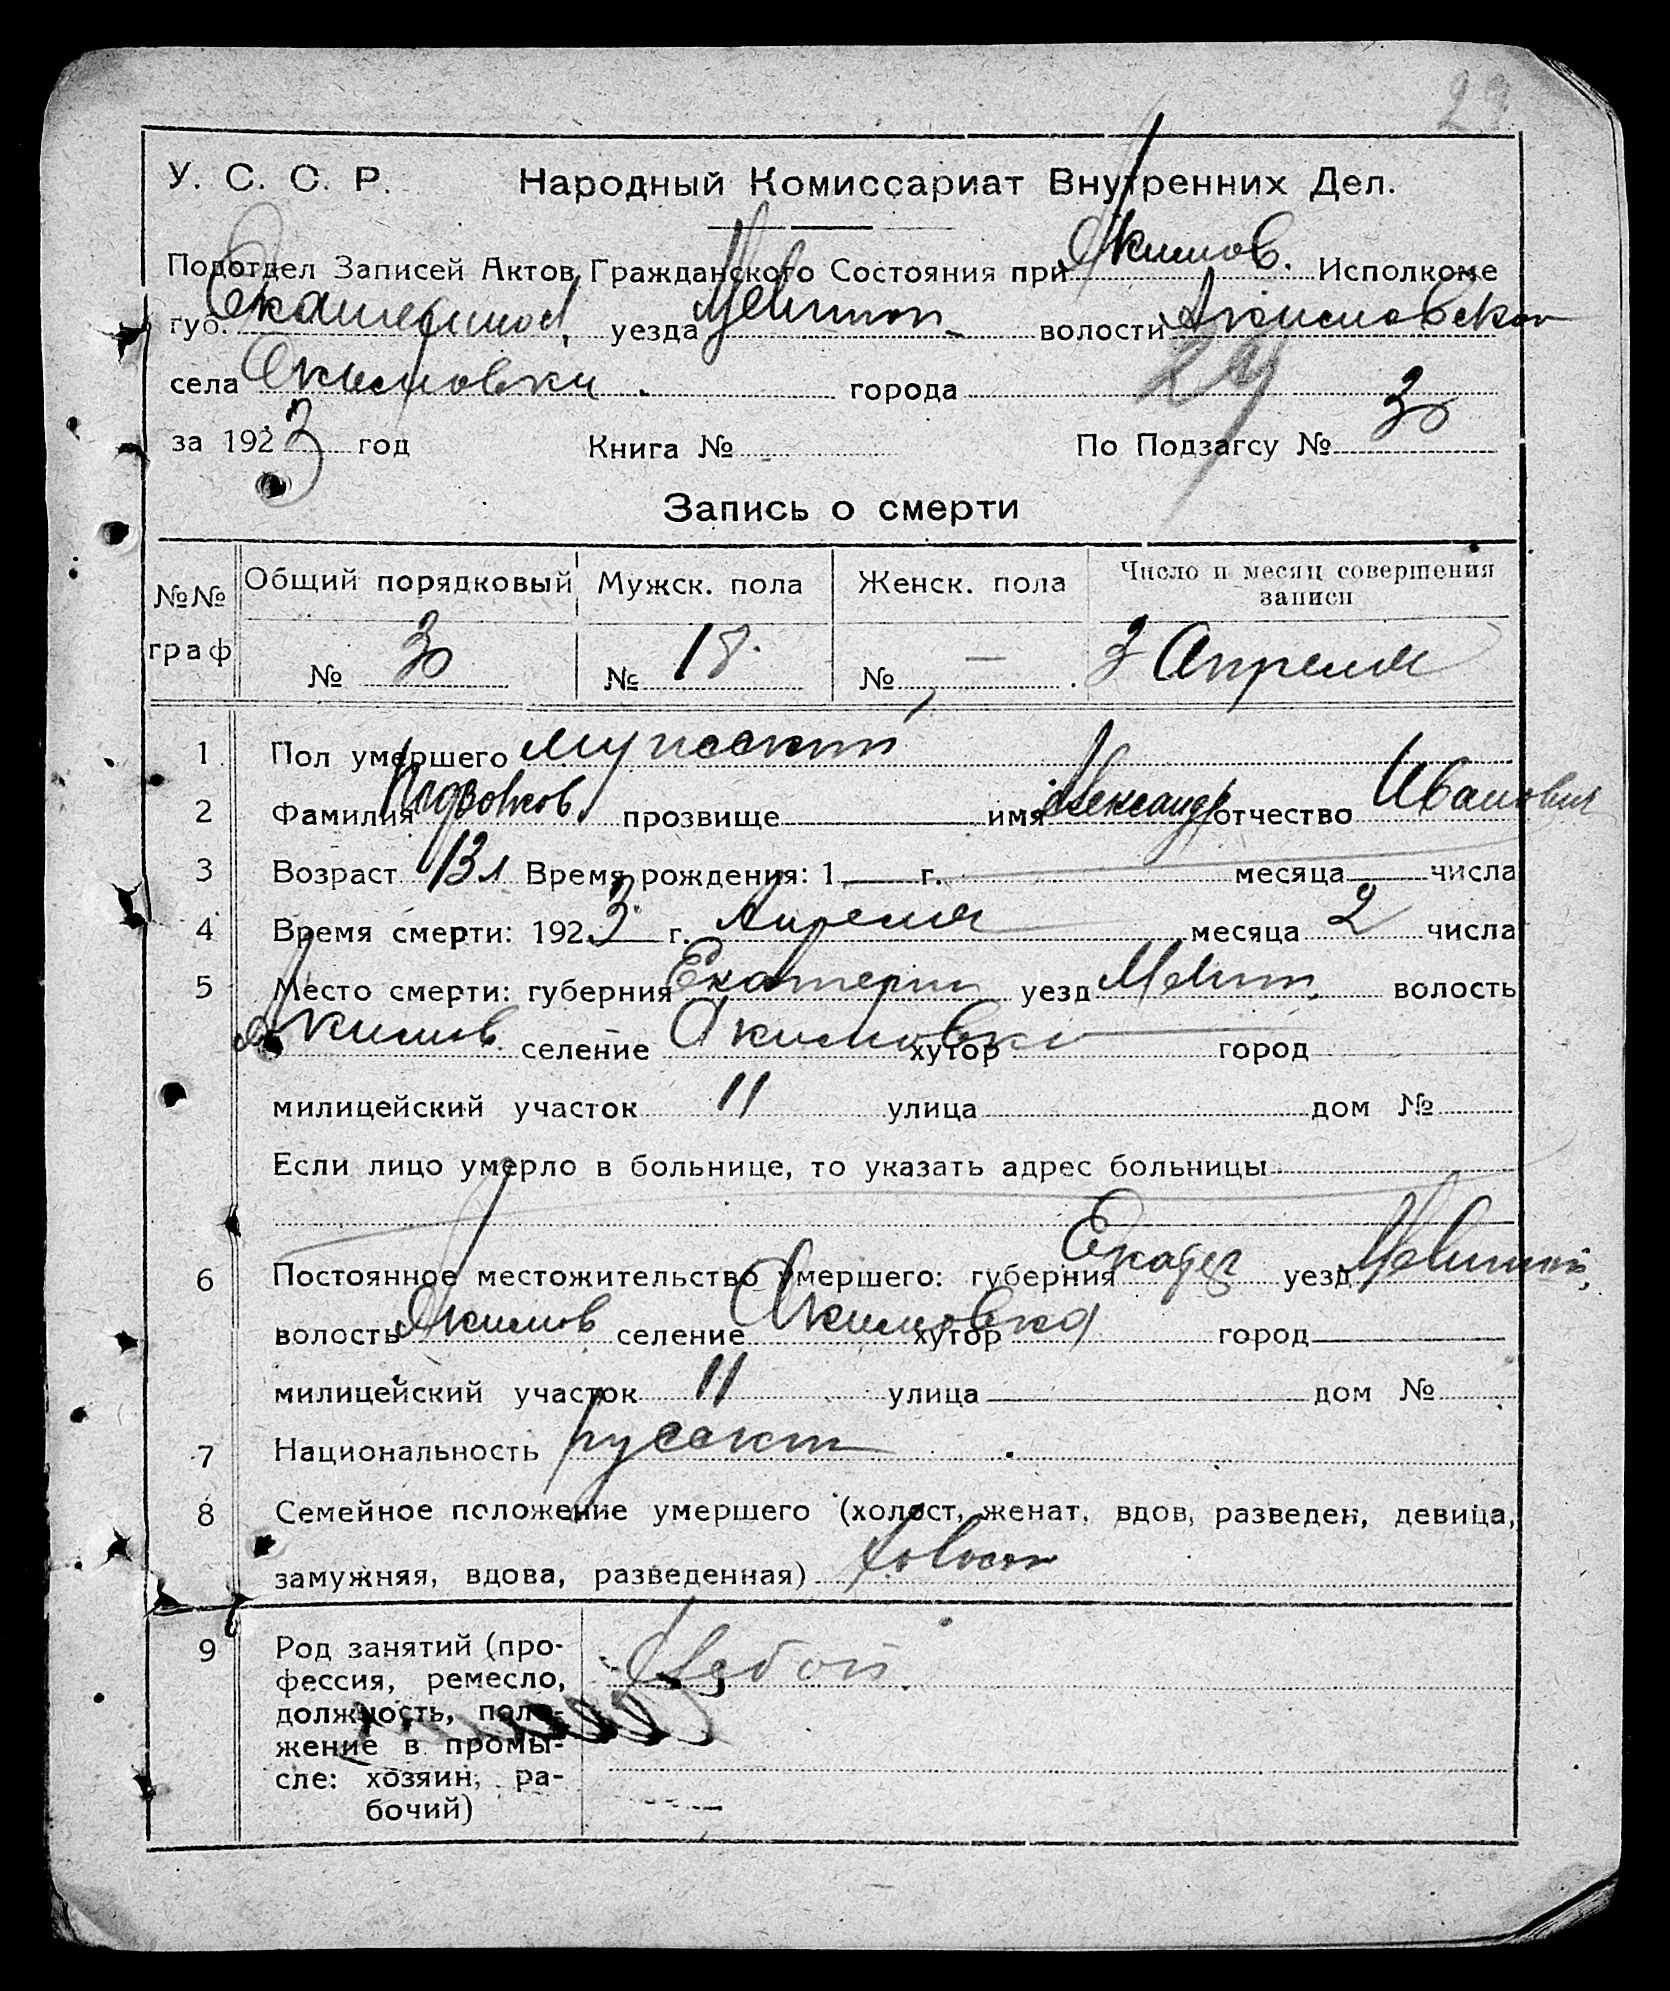 29
У. С. С. Р. Народный Комиссариат Внутренних Дел.
Подотдел Записей Актов Гражданского Состояния при Акимов. Исполкоме
губ. Екатерин уезда Мелитоп. волости Акимовской
села Акимовки города 29
за 1923 год Книга № По Подзагсу № 30
Запись о смерти
№№ граф Общий порядковый Мужск. пола Женск. пола Число и месяц совершения записи
№ 30 № 18. № — 3 Апреля
1 Пол умершего мужской
2 Фамилия прозвище имя Александр отчество Иванович
3 Возраст 13 л Время рождения: 1 г. месяца числа
4 Время смерти: 1923 г. Апреля месяца 2 числа
5 Место смерти: губерния Екатерин уезд Мелит. волость
Акимов. селение Акимовка хутор город
милицейский участок 11 улица дом №
Если лицо умерло в больнице, то указать адрес больницы
6 Постоянное местожительство умершего: губерния Екатер уезд Мелитоп.
волость Акимов селение Акимовка хутор город
милицейский участок 11 улица дом №
7 Национальность русский
8 Семейное положение умершего (холост, женат, вдов, разведен, девица,
замужняя, вдова, разведенная) холост
9 Род занятий (про-
фессия, ремесло,
должность, поло-
жение в промы-
сле: хозяин, ра-
бочий)